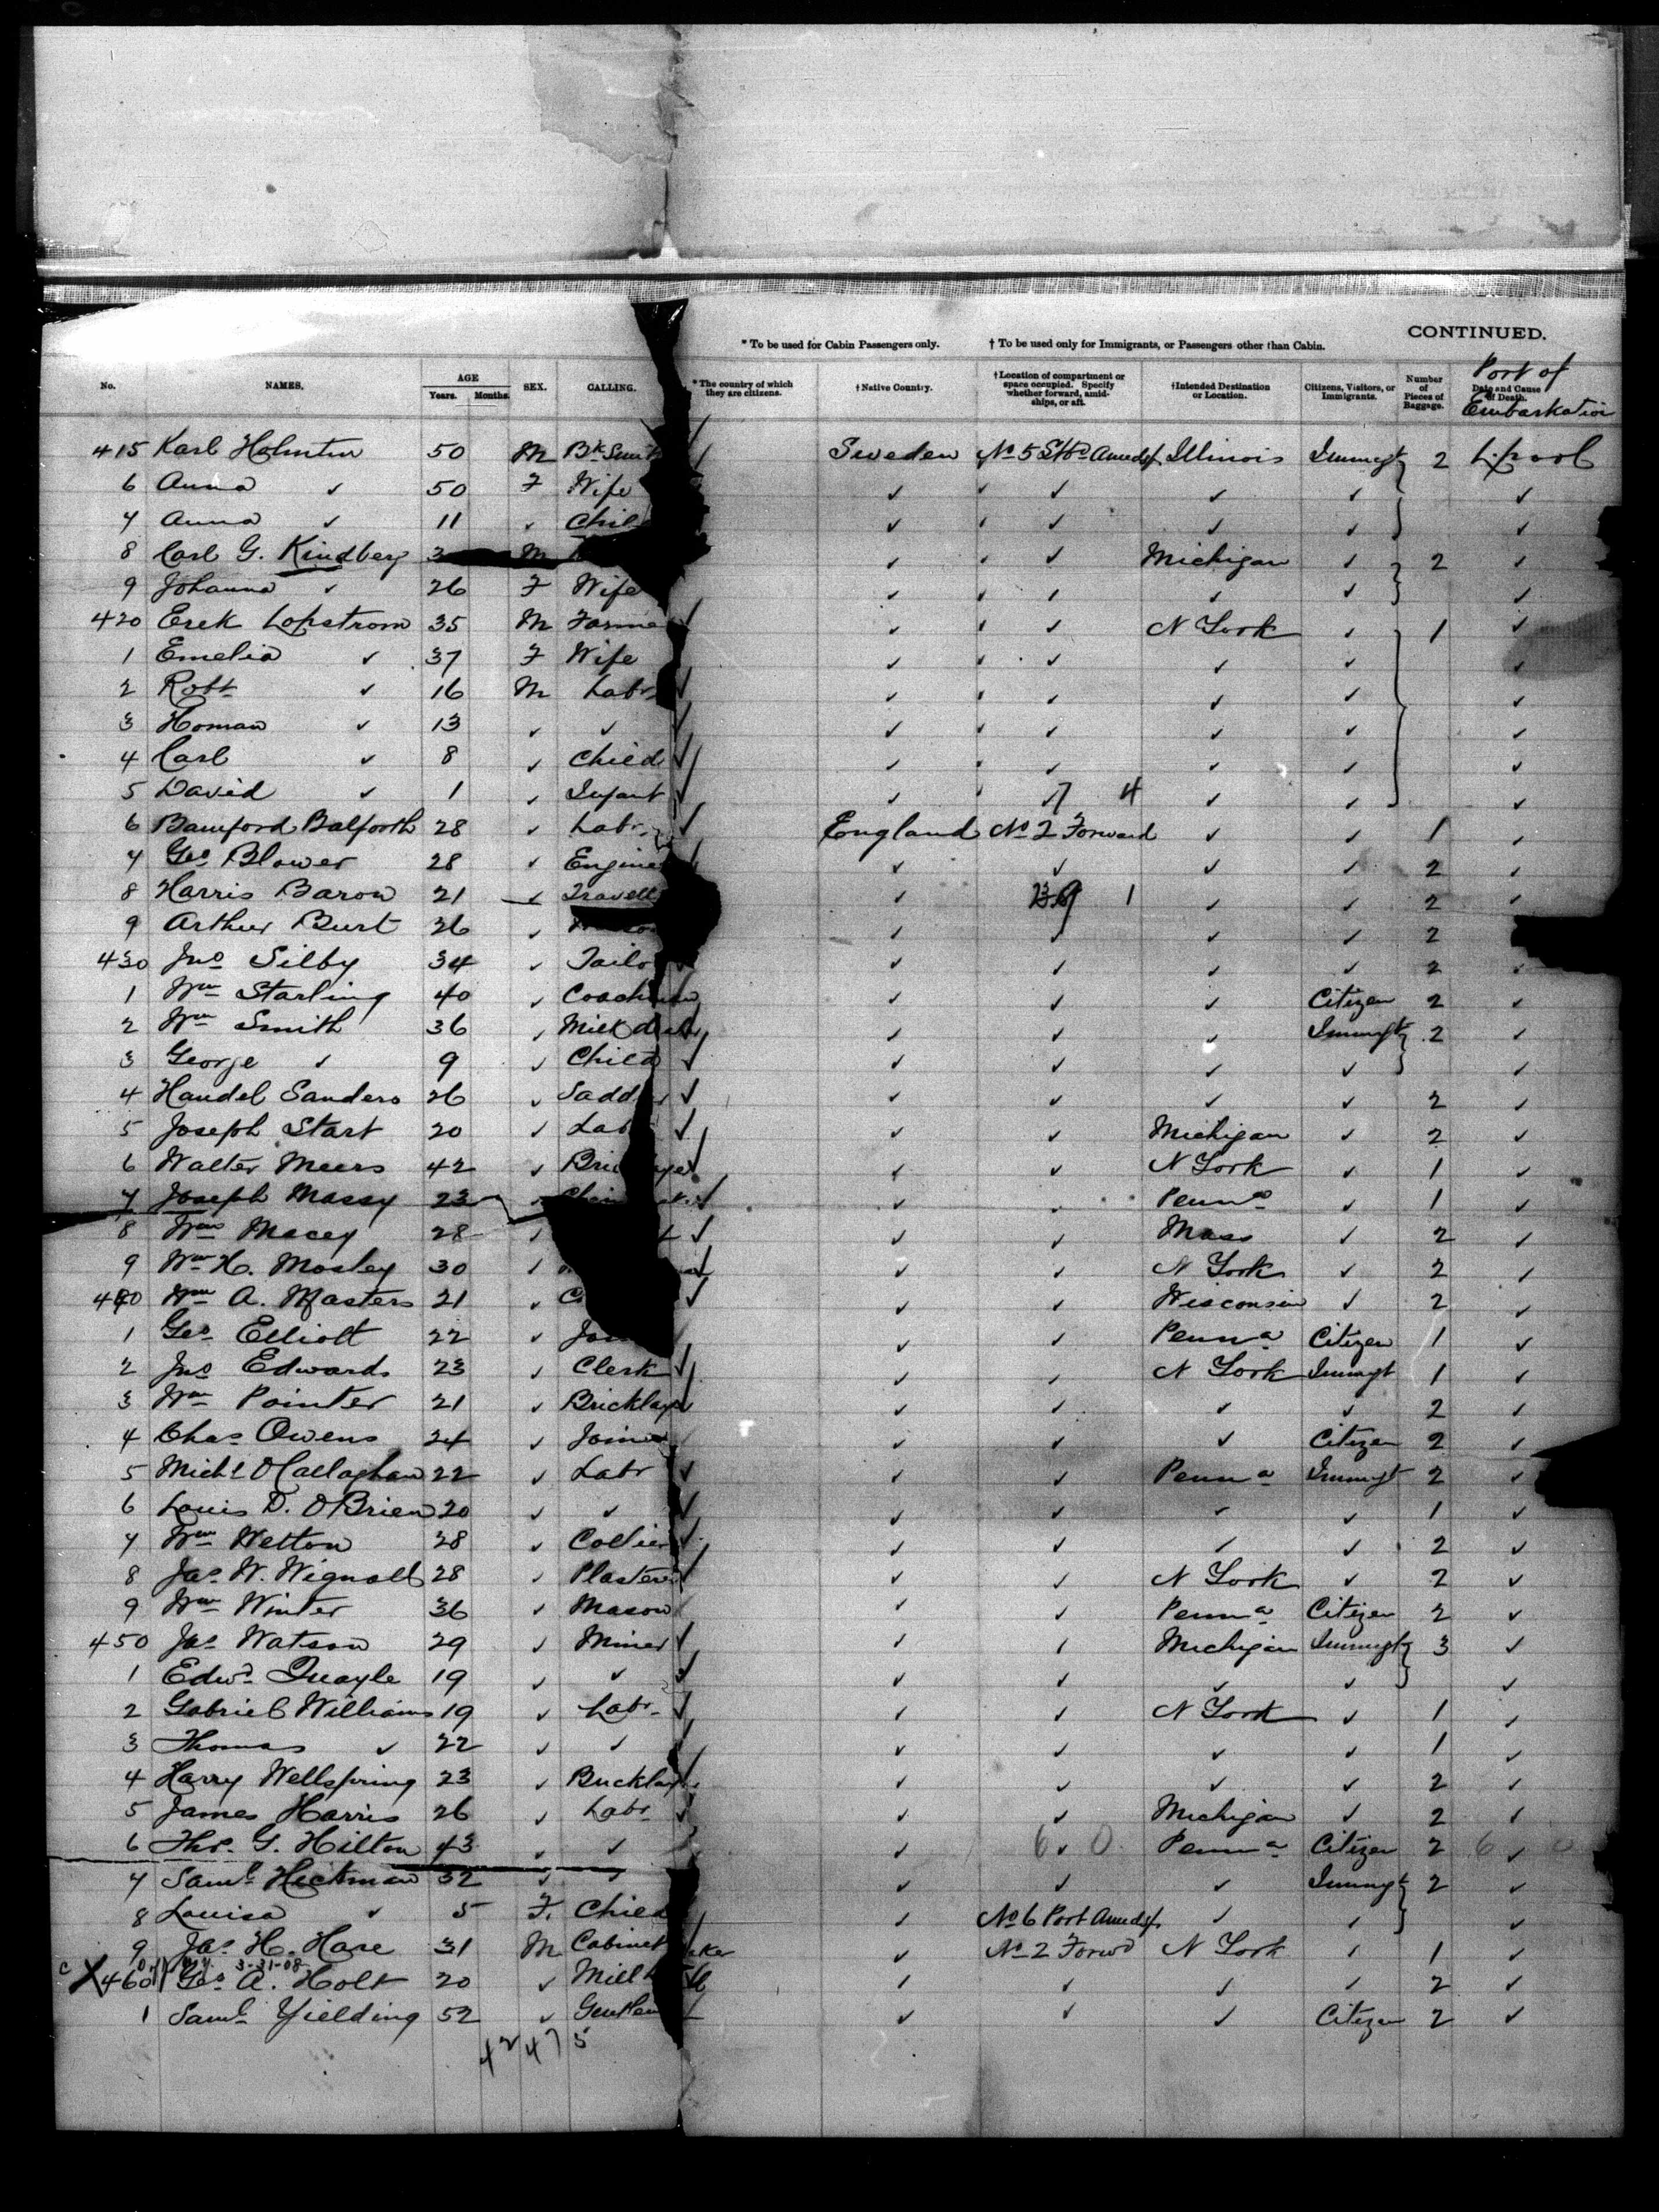 CONTINUED.
* To be used for Cabin Passengers only. † To be used only for Immigrants, or Passengers other than Cabin.
No. NAMES. AGE Years. Months. SEX. CALLING. * The country of which they are citizens. † Native Country. † Location of compartment or space occupied. Specify whether forward, amidships, or aft. † Intended Destination or Location. Citizens, Visitors, or Immigrants. Number of Pieces of Baggage. Date and Cause of Death. Port of Embarkation
415 Karl 50 M Bk Smit ✓ Sweden No 5 Illinois Immigt 2 L.pool
6 Anna ✓ 50 F Wife ✓ ✓ ✓ ✓ ✓
7 Anna ✓ 11 ✓ Chil ✓ ✓ ✓ ✓ ✓
8 Carl G. Kindberg 3 M ✓ ✓ Michigan ✓ 2 ✓
9 Johanna ✓ 26 F Wife ✓ ✓ ✓ ✓ ✓
420 Erek Lopstrom 35 M Farme ✓ ✓ ✓ N York ✓ 1 ✓
1 Emelia ✓ 37 F Wife ✓ ✓ ✓ ✓ ✓
2 Robt ✓ 16 M Labr ✓ ✓ ✓ ✓ ✓ ✓
3 Homan ✓ 13 ✓ ✓ ✓ ✓ ✓ ✓ ✓ ✓
4 Carl ✓ 8 ✓ Child ✓ ✓ ✓ ✓ ✓ ✓
5 David ✓ 1 ✓ Infant ✓ ✓ 7 4 ✓ ✓ ✓
6 Bamford Balforth 28 ✓ Labr ✓ England No 2 Forward ✓ ✓ 1 ✓
7 Geo Blower 28 ✓ Engine ✓ ✓ ✓ ✓ 2 ✓
8 Harris Baron 21 ✓ Travell ✓ 1 ✓ ✓ 2 ✓
9 Arthur Burt 26 ✓ ✓ ✓ ✓ ✓ 2
430 Jno Silby 34 ✓ Tailo ✓ ✓ ✓ ✓ 2 ✓
1 Wm Starling 40 ✓ Coachman ✓ ✓ ✓ Citizen 2 ✓
2 Wm Smith 36 ✓ Milk ✓ ✓ ✓ Immigt 2 ✓
3 George ✓ 9 ✓ Child ✓ ✓ ✓ ✓ ✓ ✓
4 Handel Sanders 26 ✓ Saddler ✓ ✓ ✓ ✓ ✓ 2 ✓
5 Joseph Start 20 ✓ Lab ✓ ✓ ✓ Michigan ✓ 2 ✓
6 Walter Meers 42 ✓ Bri ayer ✓ ✓ N York ✓ 1 ✓
7 Joseph Massy 23 ✓ Chai ✓ ✓ Penna ✓ 1 ✓
8 Wm Macey 28 ✓ ✓ ✓ ✓ Mass ✓ 2 ✓
9 Wm H. Mosley 30 ✓ ✓ ✓ N York ✓ 2 ✓
440 Wm A. Masters 21 ✓ C ✓ ✓ ✓ Wisconsin ✓ 2 ✓
1 Geo Elliott 22 ✓ Joi ✓ ✓ ✓ Penna Citizen 1 ✓
2 Jno Edwards 23 ✓ Clerk ✓ ✓ ✓ N York Immigt 1 ✓
3 Wm Pointer 21 ✓ Bricklaye ✓ ✓ ✓ ✓ ✓ 2 ✓
4 Chas Owens 24 ✓ Joiner ✓ ✓ ✓ ✓ Citizen 2 ✓
5 Michl O'Callaghan 22 ✓ Labr ✓ ✓ ✓ Penna Immigt 2 ✓
6 Louis D. OBrien 20 ✓ ✓ ✓ ✓ ✓ ✓ ✓ 1 ✓
7 Wm Welton 28 ✓ Collier ✓ ✓ ✓ ✓ ✓ 2 ✓
8 Jas W. Wignall 28 ✓ Plasterer ✓ ✓ ✓ N York ✓ 2 ✓
9 Wm Winter 36 ✓ Mason ✓ ✓ ✓ Penna Citizen 2 ✓
450 Jas Watson 29 ✓ Miner ✓ ✓ ✓ Michigan Immigt 3 ✓
1 Edwd Quayle 19 ✓ ✓ ✓ ✓ ✓ ✓ ✓ ✓
2 Gabriel Williams 19 ✓ Labr ✓ ✓ ✓ N York ✓ 1 ✓
3 Thomas ✓ 22 ✓ ✓ ✓ ✓ ✓ ✓ ✓ 1 ✓
4 Harry Wellspring 23 ✓ Bricklay ✓ ✓ ✓ ✓ 2 ✓
5 James Harris 26 ✓ Labr ✓ ✓ ✓ Michigan ✓ 2 ✓
6 Thos. G. Hilton 43 ✓ ✓ ✓ 6 ✓ 0 Penna Citizen 2 6 ✓ 0
7 Saml Hickman 32 ✓ ✓ ✓ ✓ ✓ Immigt 2 ✓
8 Louisa ✓ 5 F. Child ✓ No 6 Port ✓ ✓ ✓
9 Jas H. Hare 31 M Cabinet aker ✓ No 2 Forwd N York ✓ 1 ✓
3-31-08
c X 460 Geo A. Holt 20 ✓ Mill ✓ ✓ ✓ ✓ 2 ✓
1 Saml Yielding 52 ✓ Gentlem ✓ ✓ ✓ Citizen 2 ✓
42 47 5